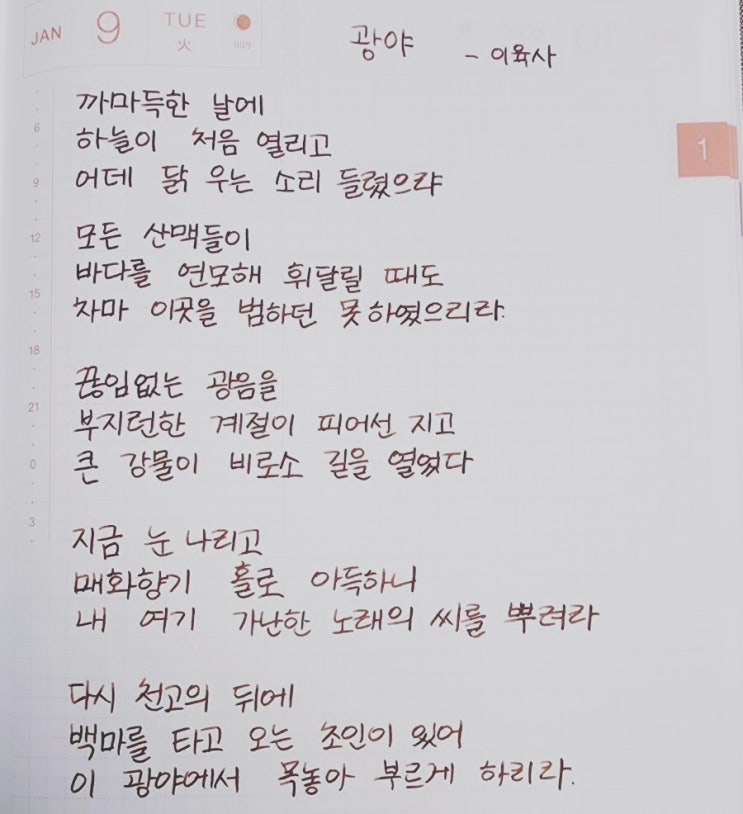 JAN 9 TUE 火 009
광야 - 이육사
1
까마득한 날에
6
하늘이 처음 열리고
9
어데 닭 우는 소리 들렸으랴
12
모든 산맥들이
바다를 연모해 휘달릴 때도
15
차마 이곳을 범하던 못하였으리라.
18
끊임없는 광음을
21
부지런한 계절이 피어선 지고
0
큰 강물이 비로소 길을 열었다
3
지금 눈 나리고
매화향기 홀로 아득하니
내 여기 가난한 노래의 씨를 뿌려라
다시 천고의 뒤에
백마를 타고 오는 초인이 있어
이 광야에서 목놓아 부르게 하리라.